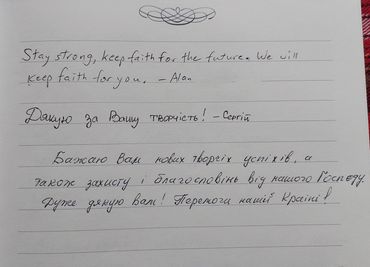 Stay strong, keep faith for the future. We will
keep faith for you. - Alan
Дякую за Вашу творчість! - Сергій
Бажаю Вам нових творчіх успіхів, а
також захисту і благословінь від нашого Господу.
Дуже дякую Вам! Перемоги нашій Країні!